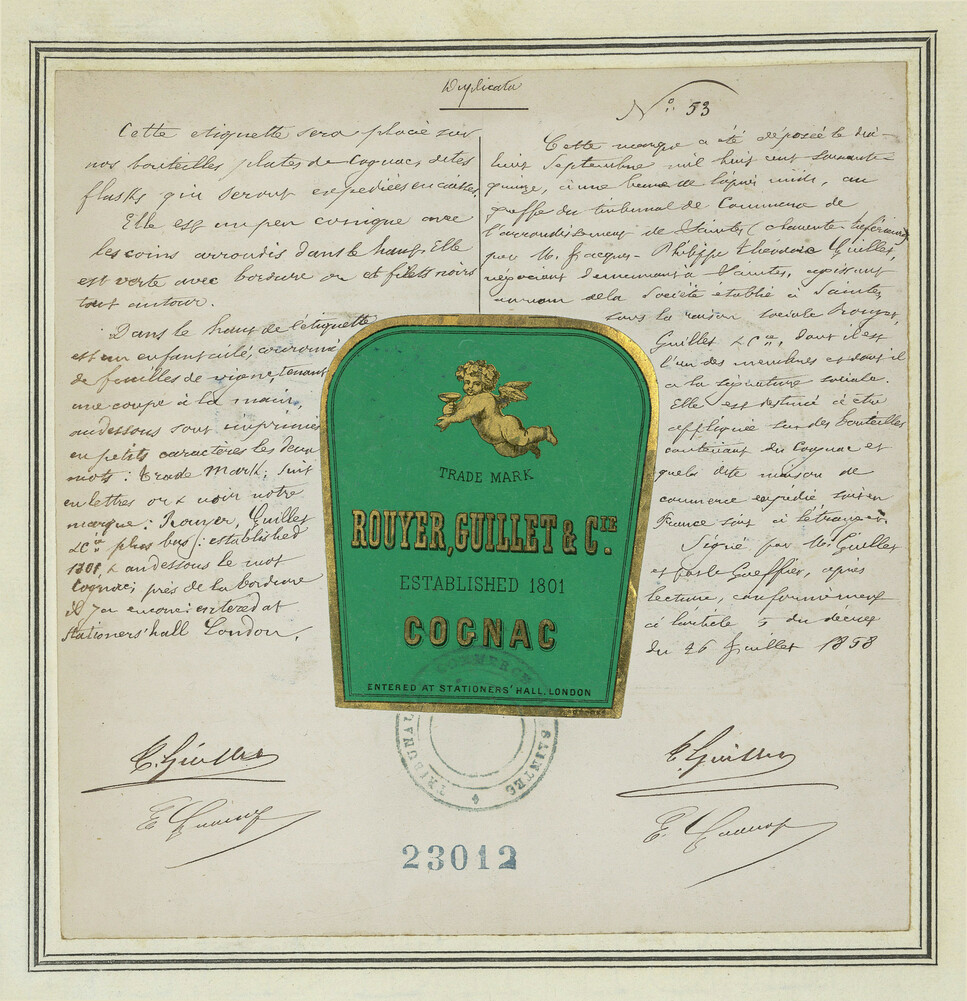 Duplicata
N° 53
Cette etiquette sera placée sur
nos bouteilles plates de Cognac, dites
flasks qui seront expediées en caisses.
Elle est un peu conique avec
les coins arrondis dans le haut. Elle
est verte avec bordure or et filets noirs
tout autour.
Dans le haut de l'étiquette
est un enfant ailé, couronné
de feuilles de vigne, tenant
une coupe à la main,
au dessous sont imprimés
en petits caractères les deux
mots: trade mark; suit
en lettres or & noir notre
marque: Rouyer, Guillet
& Cie plus bas: established
1801 & au dessous le mot
Cognac; près de la bordure
il y a encore: entered at
stationers' hall London.
Cette marque a été déposée le dix-
huit Septembre mil huit cent soixante
quinze, à une heure de l'après midi, au
greffe du tribunal de Commerce de
l'arrondissement de Saintes (charente inférieure)
par M. Jacques-Philippe Théodore Guillet,
négociant demeurant à Saintes, agissant
au nom de la Société établie à Saintes
sous la raison sociale Rouyer,
Guillet & Cie, dont il est
l'un des membres et dont il
a la signature sociale.
Elle est destinée à être
appliquée sur des bouteilles
contenant du Cognac et
que la dite maison de
commerce expédie soit en
France soit à l'étranger.
Signé par M. Guillet
et par le Greffier, après
lecture, conformément
à l'article 5 du décret
du 26 Juillet 1858
TRADE MARK
ROUYER, GUILLET & CIE.
ESTABLISHED 1801
COGNAC
ENTERED AT STATIONERS' HALL, LONDON
TRIBUNAL COMMERCE SAINTES
T. Guillet
T. Guillet
23012